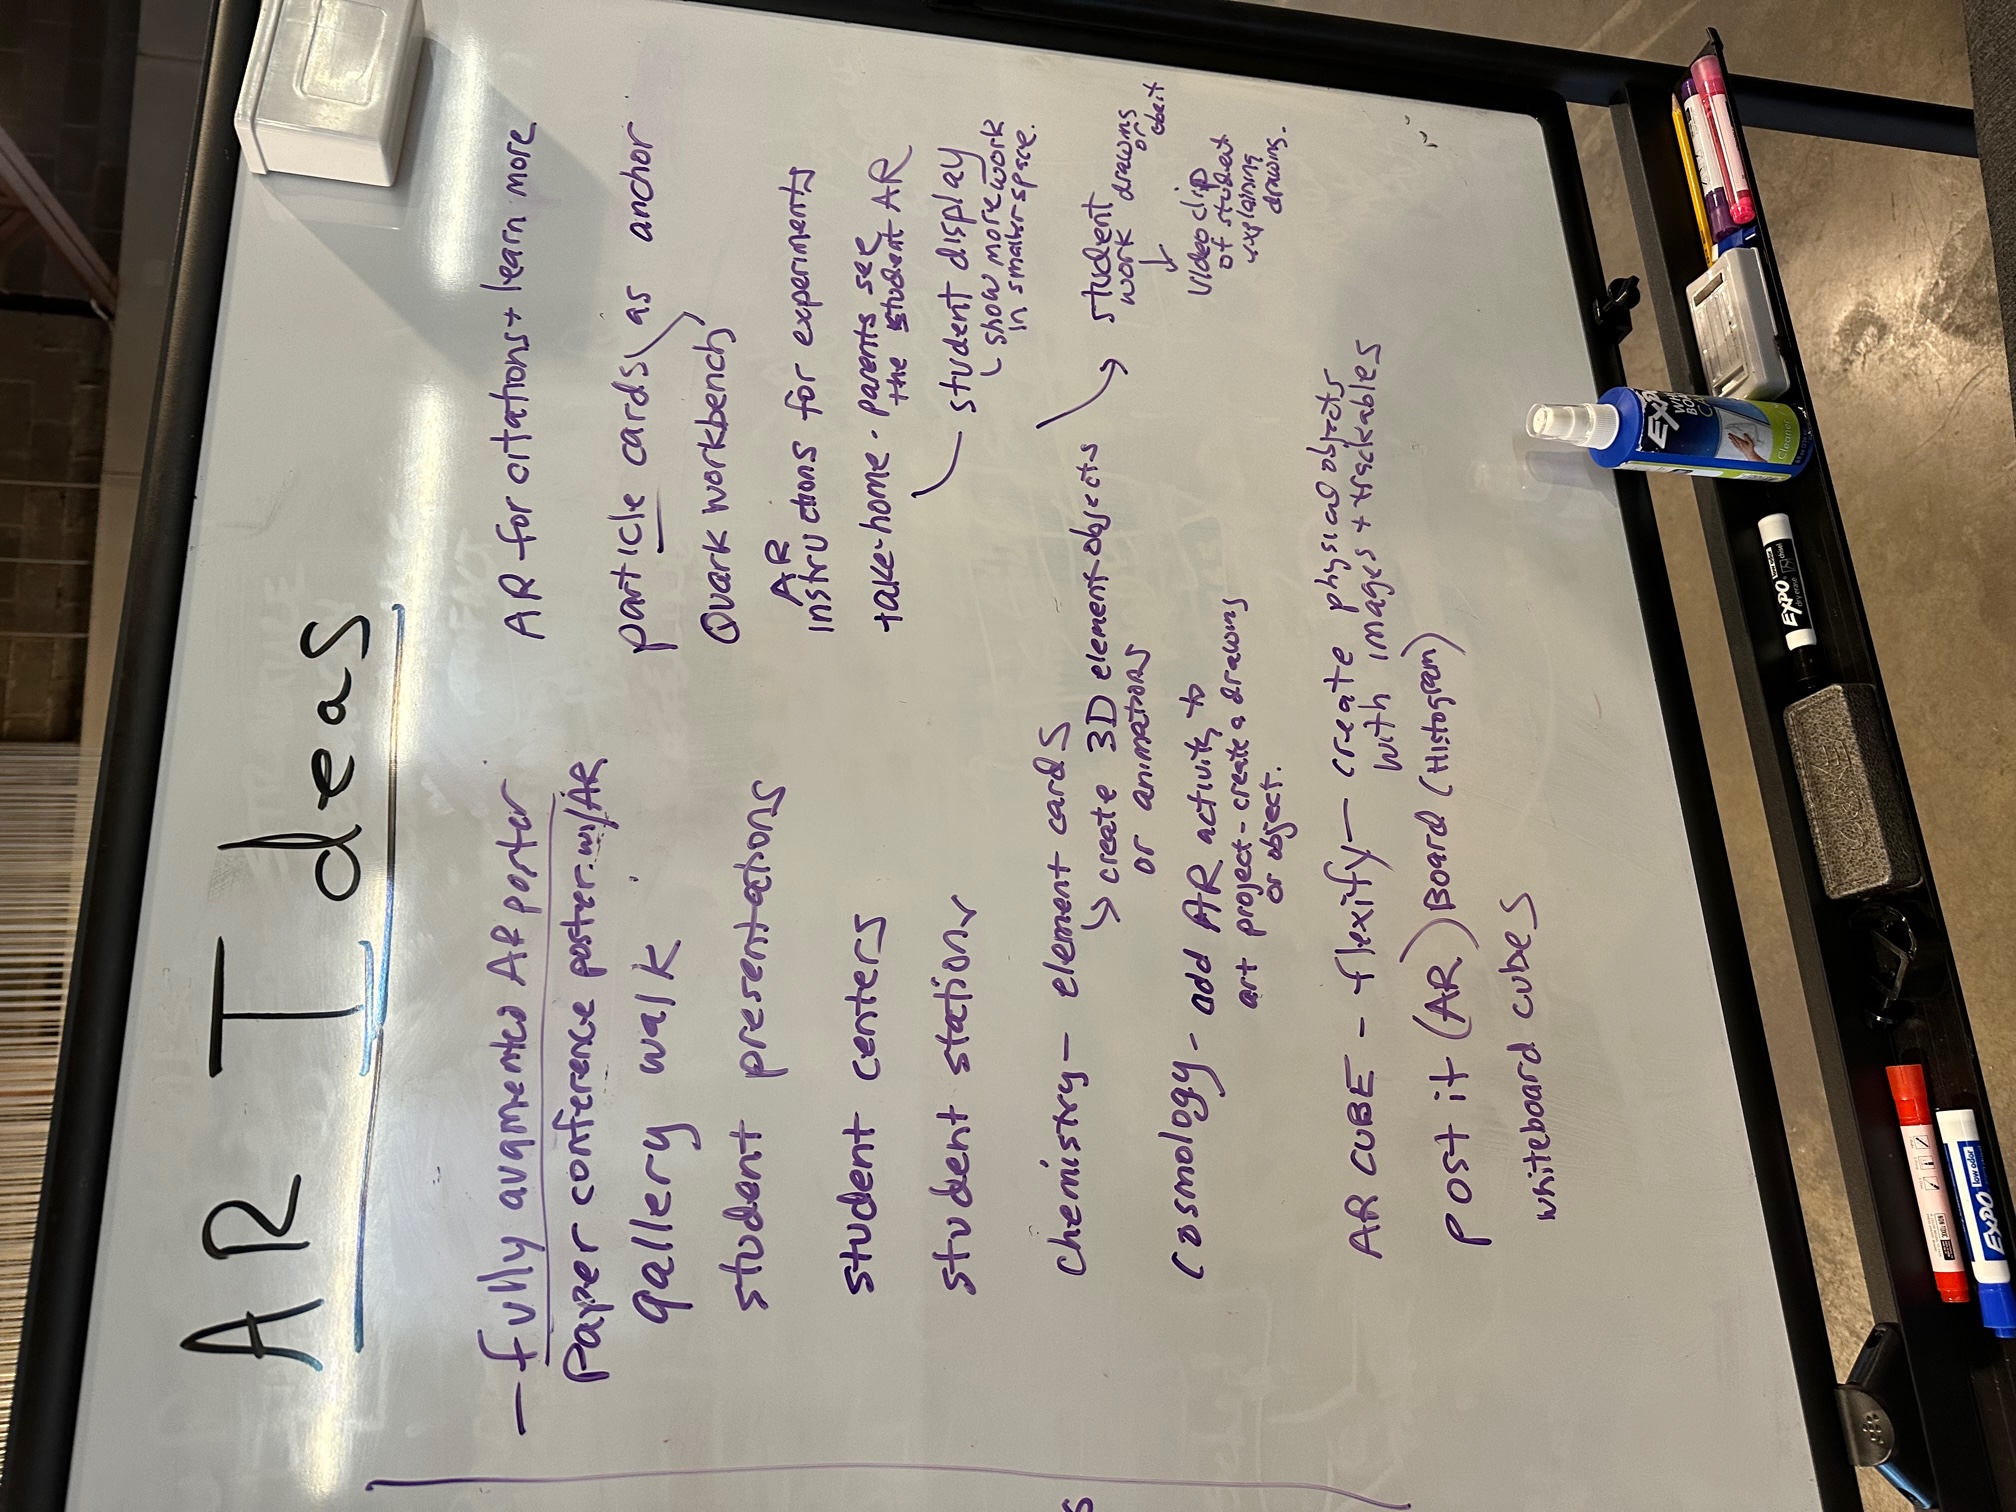 AR Ideas
— fully augmented AR poster
Paper conference poster w/AR
gallery walk
student presentations
student centers
student stations
Chemistry — element cards
↳ create 3D element objects
or animations
→ student work drawing or object
↓
video clip
of student
explaining
drawing.
Cosmology - add AR activity to
art project - create a drawing
or object.
AR CUBE - flexify — create physical objects
with images + trackables
Post it (AR) Board (Histogram)
whiteboard cubes
AR for citations + learn more
particle cards as anchor
Quark workbench
AR
instructions for experiments
take-home - parents see
the student AR
student display
show more work
in smaller space.
EXPO
Cleaner
EXPO
dry erase
EXPO
low odor